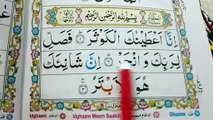 بِسْمِ اللّٰهِ الرَّحْمٰنِ الرَّحِيْمِ
اِنَّاۤ اَعْطَيْنٰكَ الْكَوْثَرَ فَصَلِّ
لِرَبِّكَ وَانْحَرْ اِنَّ شَانِئَكَ
هُوَ الْاَبْتَرُ
Idghaam Idghaam Meem Saakin Ghunna